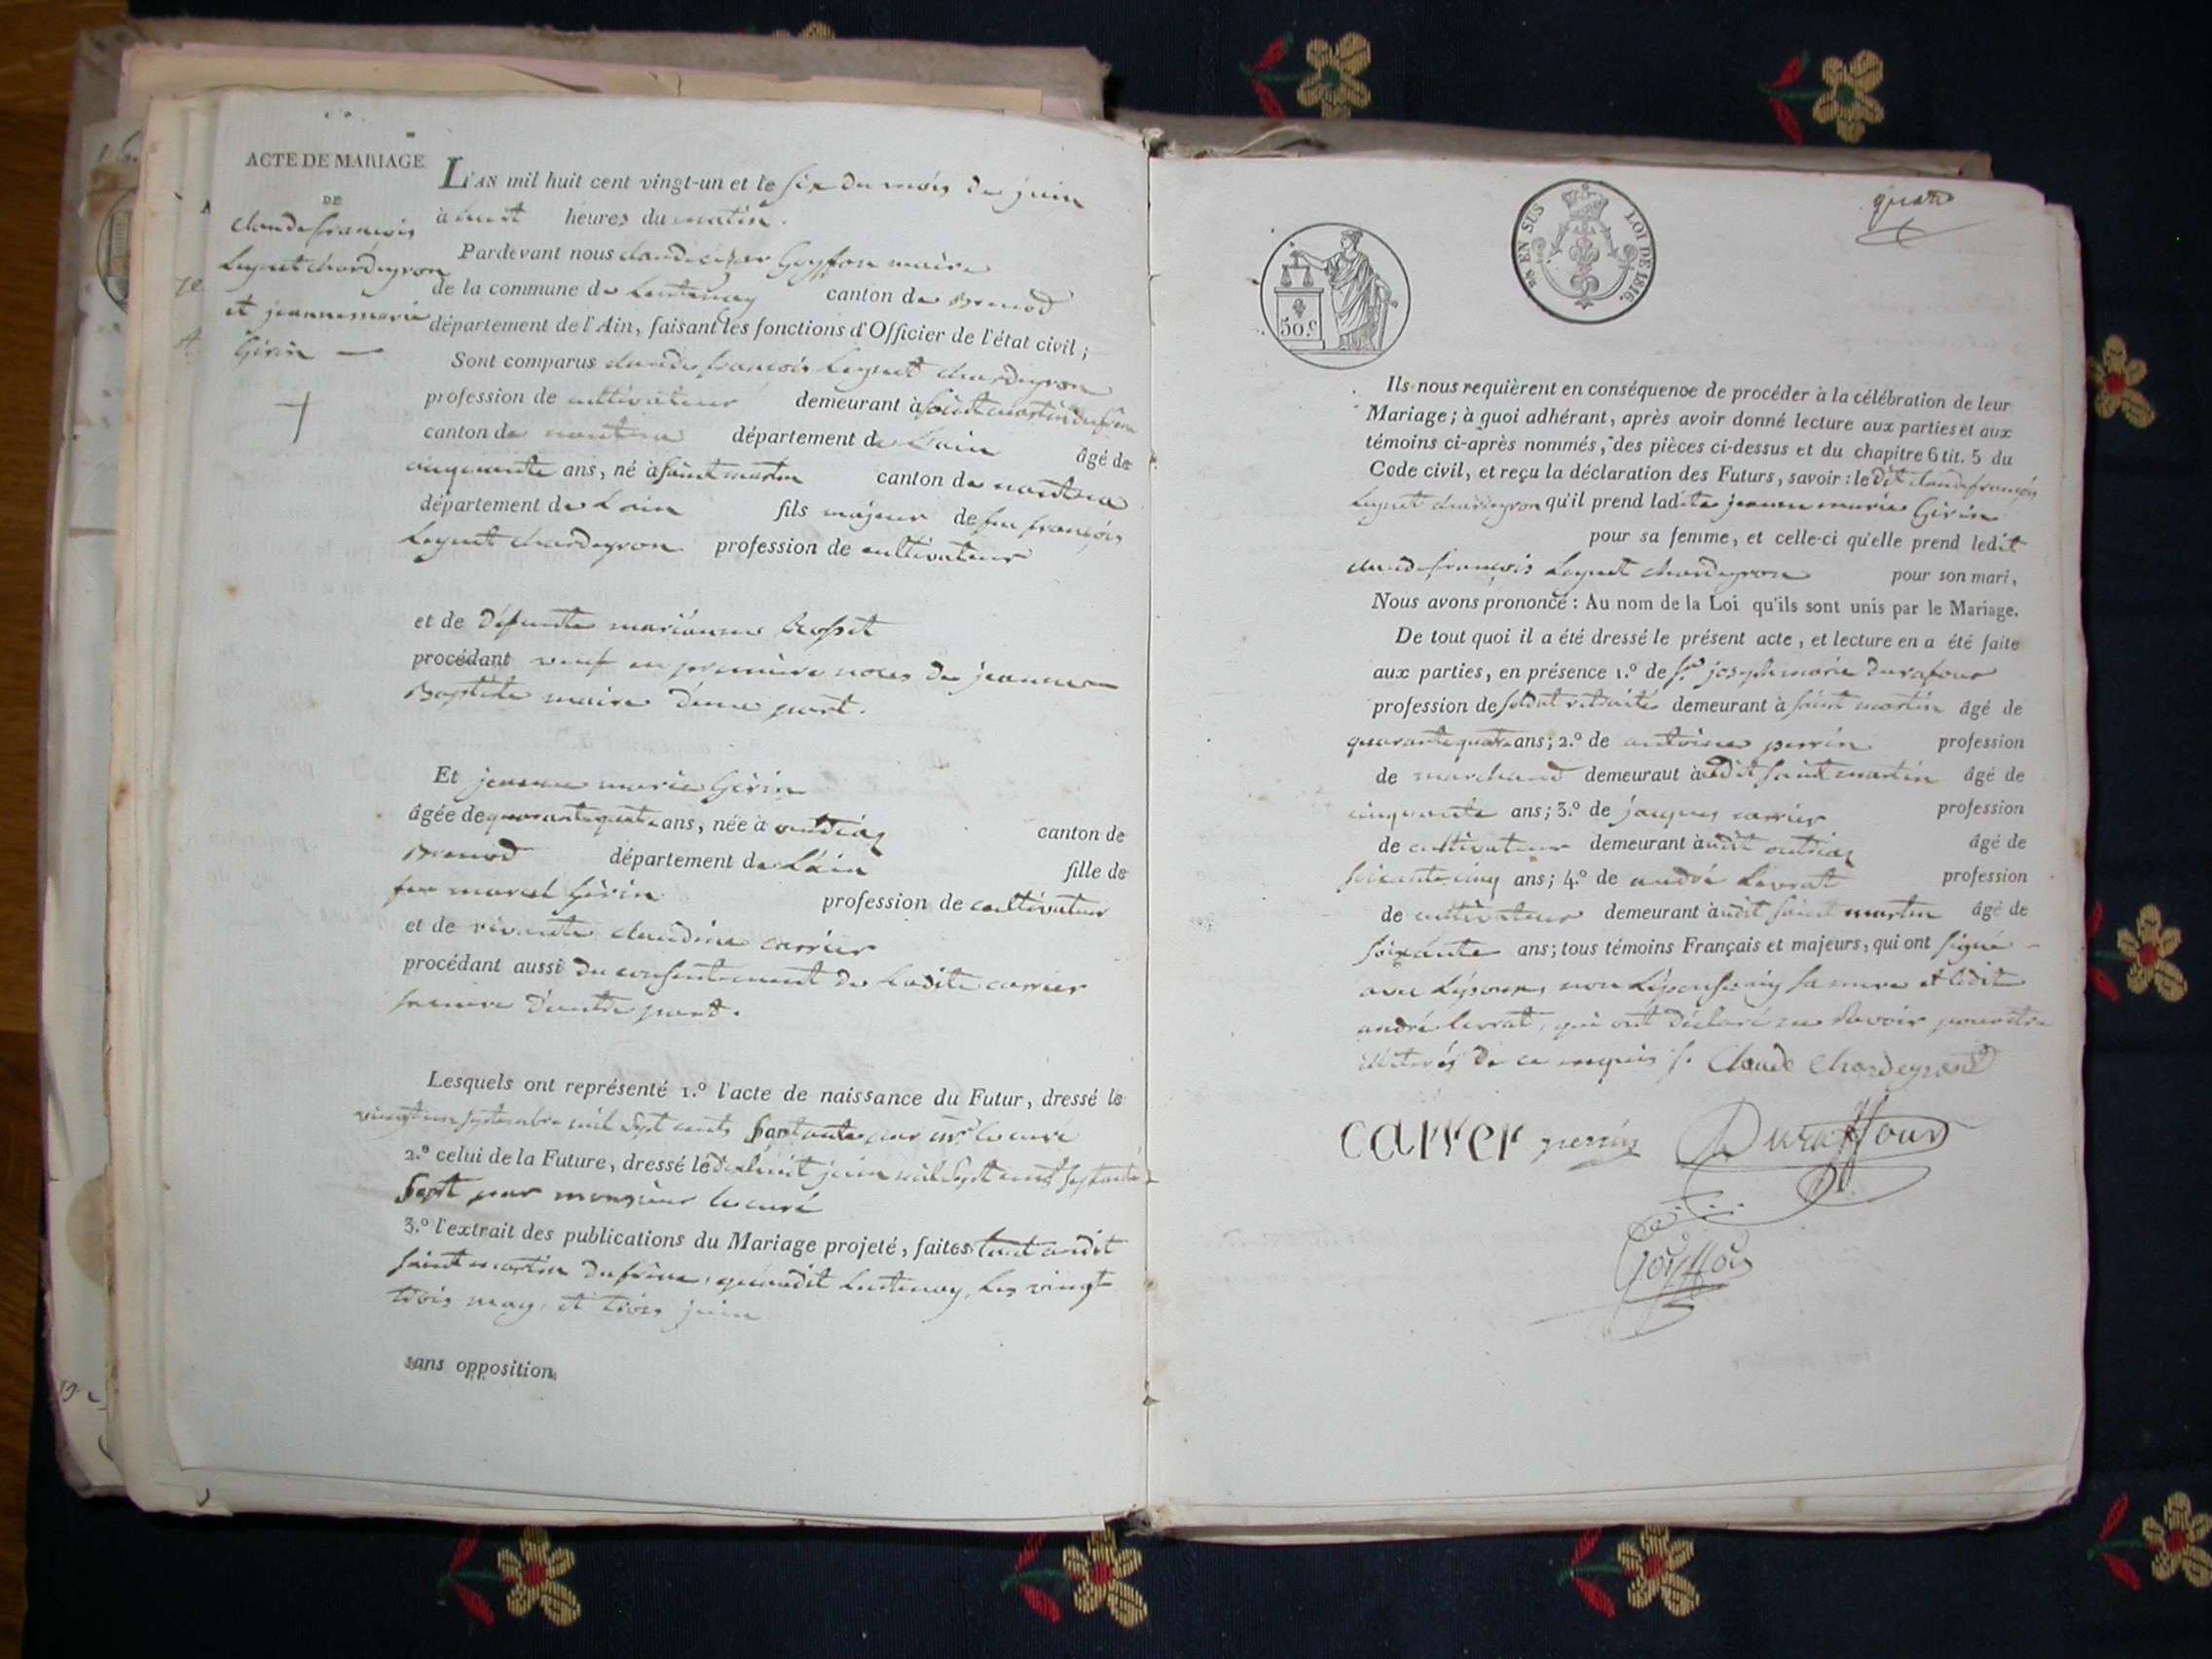 ACTE DE MARIAGE
DE
Claude françois
Leguet chardeyron
et jeanne marie
Girin
L'AN mil huit cent vingt-un et le six du mois de juin
à huit heures du matin.
Pardevant nous claude cézar Goyffon maire
de la commune de Lantenay canton de Brenod
département de l'Ain, faisant les fonctions d'Officier de l'état civil ;
Sont comparus claude françois Leguet chardeyron
profession de cultivateur demeurant à saint martin du frêne
canton de nantua département de L'ain âgé de
cinquante ans, né à saint martin canton de nantua
département de L'ain fils majeur de feu françois
Leguet chardeyron profession de cultivateur
et de défunte marianne
procédant veuf en première noces de jeanne
Baptiste maire d'une part.
Et jeanne marie Girin
âgée de quarante quatre ans, née à outriaz canton de
Brenod département de L'ain fille de
feu marcel Girin profession de cultivateur
et de vivante claudine carrier
procédant aussi du consentement de ladite carrier
sa mère d'autre part.
Lesquels ont représenté 1.º l'acte de naissance du Futur, dressé le
vingt un septembre mil sept cents septante par mr le curé
2.º celui de la Future, dressé le dix huit juin mil sept cent septante
sept par monsieur le curé
3.º l'extrait des publications du Mariage projeté, faites tant audit
saint martin du frêne, qu'audit Lantenay, les vingt
trois may, et trois juin
sans opposition.
50.c
EN SUS LOI DE 1816.
Ils nous requièrent en conséquence de procéder à la célébration de leur
Mariage ; à quoi adhérant, après avoir donné lecture aux parties et aux
témoins ci-après nommés, des pièces ci-dessus et du chapitre 6 tit. 5 du
Code civil, et reçu la déclaration des Futurs, savoir : le dit claude françois
Leguet chardeyron qu'il prend ladite jeanne marie Girin
pour sa femme, et celle-ci qu'elle prend ledit
claude françois Leguet chardeyron pour son mari,
Nous avons prononcé : Au nom de la Loi qu'ils sont unis par le Mariage.
De tout quoi il a été dressé le présent acte, et lecture en a été faite
aux parties, en présence 1.º de sr joseph marie durafour
profession de soldat retraité demeurant à saint martin âgé de
quarante quatre ans ; 2.º de antoine perrin profession
de marchand demeuraut audit saint martin âgé de
cinquante ans ; 3.º de jacques carrier profession
de cultivateur demeurant audit outriaz âgé de
soixante cinq ans ; 4.º de andré Levrat profession
de cultivateur demeurant audit saint martin âgé de
soixante ans ; tous témoins Français et majeurs, qui ont signé
avec L'époux, non L'épouse ny sa mere et ledit
andré levrat, qui ont déclaré ne savoir pour être
illiterés de ce requis Claude Chardeyron
carrer perrin Duraffour
Goyffon